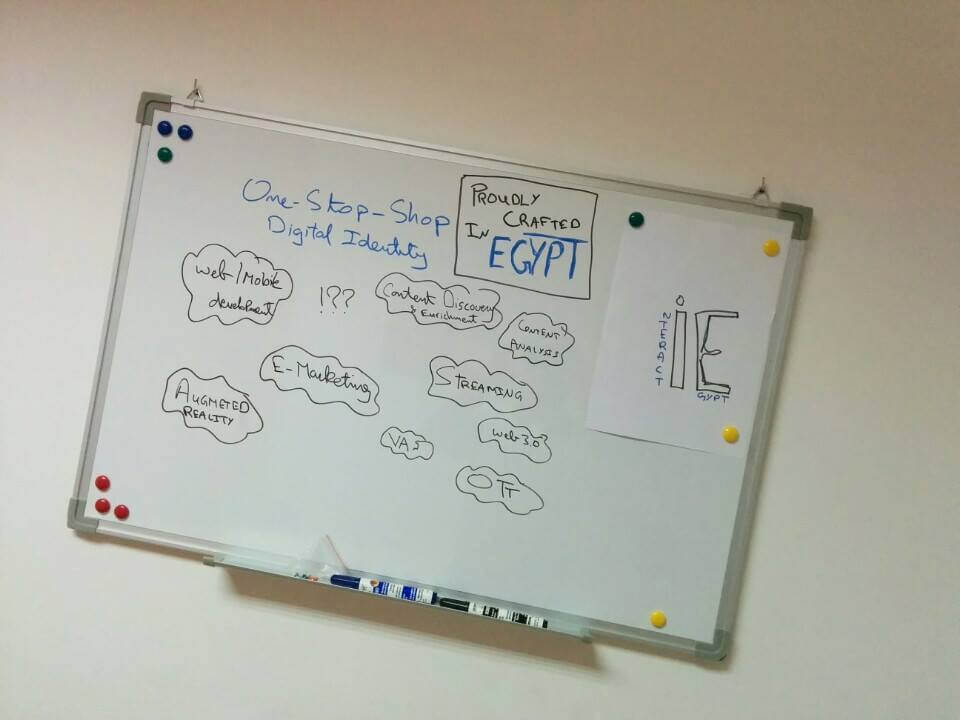 One-Stop-Shop
Digital Identity
PROUDLY
CRAFTED
IN EGYPT
Web/Mobile
development
!??
Content Discovery
& Enrichment
CONTENT
ANALYSIS
E-Marketing
STREAMING
AUGMETED
REALITY
VAS
Web 3.0
OTT
INTERACT
EGYPT